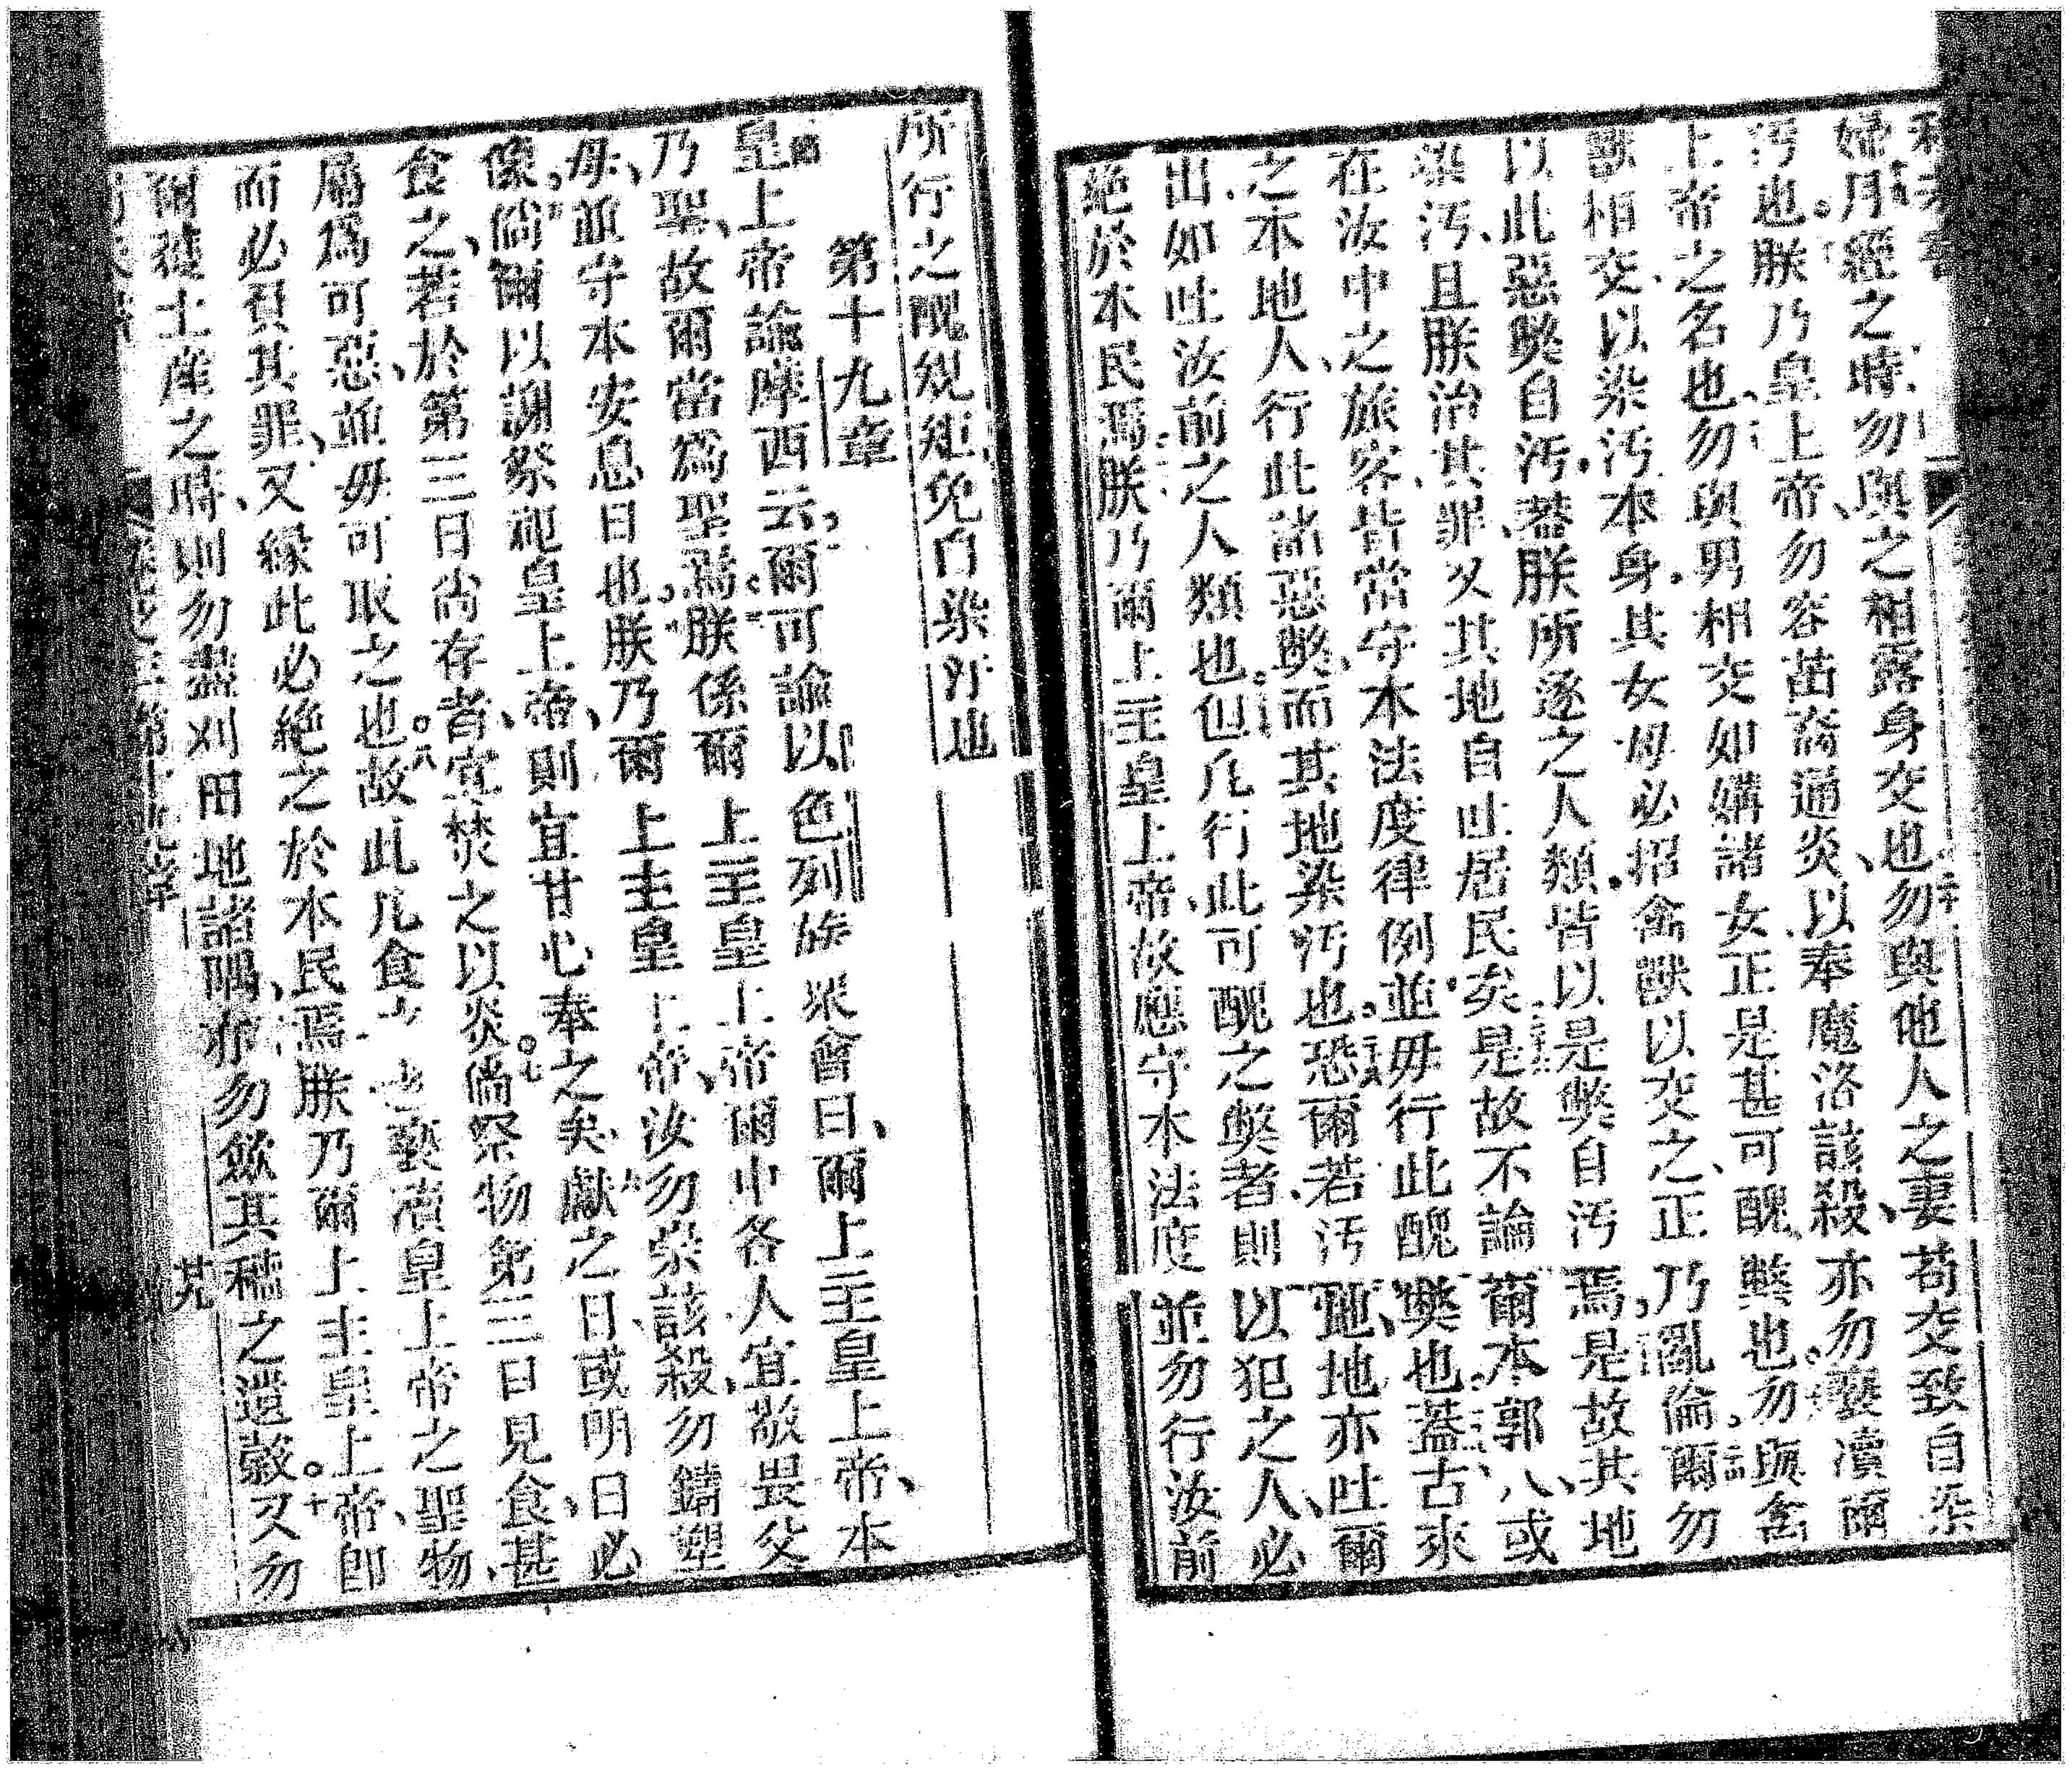 婦月經之時勿與之相露身交也勿與他人之妻苟交致自染
汚也朕乃皇上帝勿容苗裔通炎以奉魔洛該殺亦勿褻瀆爾
上帝之名也勿與男相交如媾諸女正是甚可醜弊也勿與禽
獸相交以染汚本身其女毋必招禽獸以交之正乃亂倫爾勿
以此惡弊自汚蓋朕所逐之人類皆以是弊自汚焉是故其地
染汚且朕治其罪又其地自吐居民矣是故不論爾本郭人或
在汝中之旅客皆當守本法度律例並毋行此醜弊也蓋古來
之本地人行此諸惡弊而其地染汚也恐爾若汚地地亦吐爾
出如吐汝前之人類也但凡行此可醜之弊者則以犯之人必
絕於本民焉朕乃爾上主皇上帝故應守本法度並勿行汝前
所行之醜規矩免自染汚也
第十九章
皇上帝諭摩西云爾可諭以色列族眾會曰爾上主皇上帝本
乃聖故爾當為聖焉朕係爾上主皇上帝爾中各人宜敬畏父
母並守本安息日也朕乃爾上主皇上帝汝勿崇該殺勿鑄塑
像倘爾以謝祭祀皇上帝則宜甘心奉之矣獻之日或明日必
食之若於第三日尚存者宜焚之以炎倘祭物第三日見食甚
屬為可惡並毋可取之也故此凡食者褻瀆皇上帝之聖物
而必負其罪又緣此必絕之於本民焉朕乃爾上主皇上帝卽
爾穫土產之時則勿盡刈田地諸隅亦勿歛其穡之遺穀又勿
第十九章